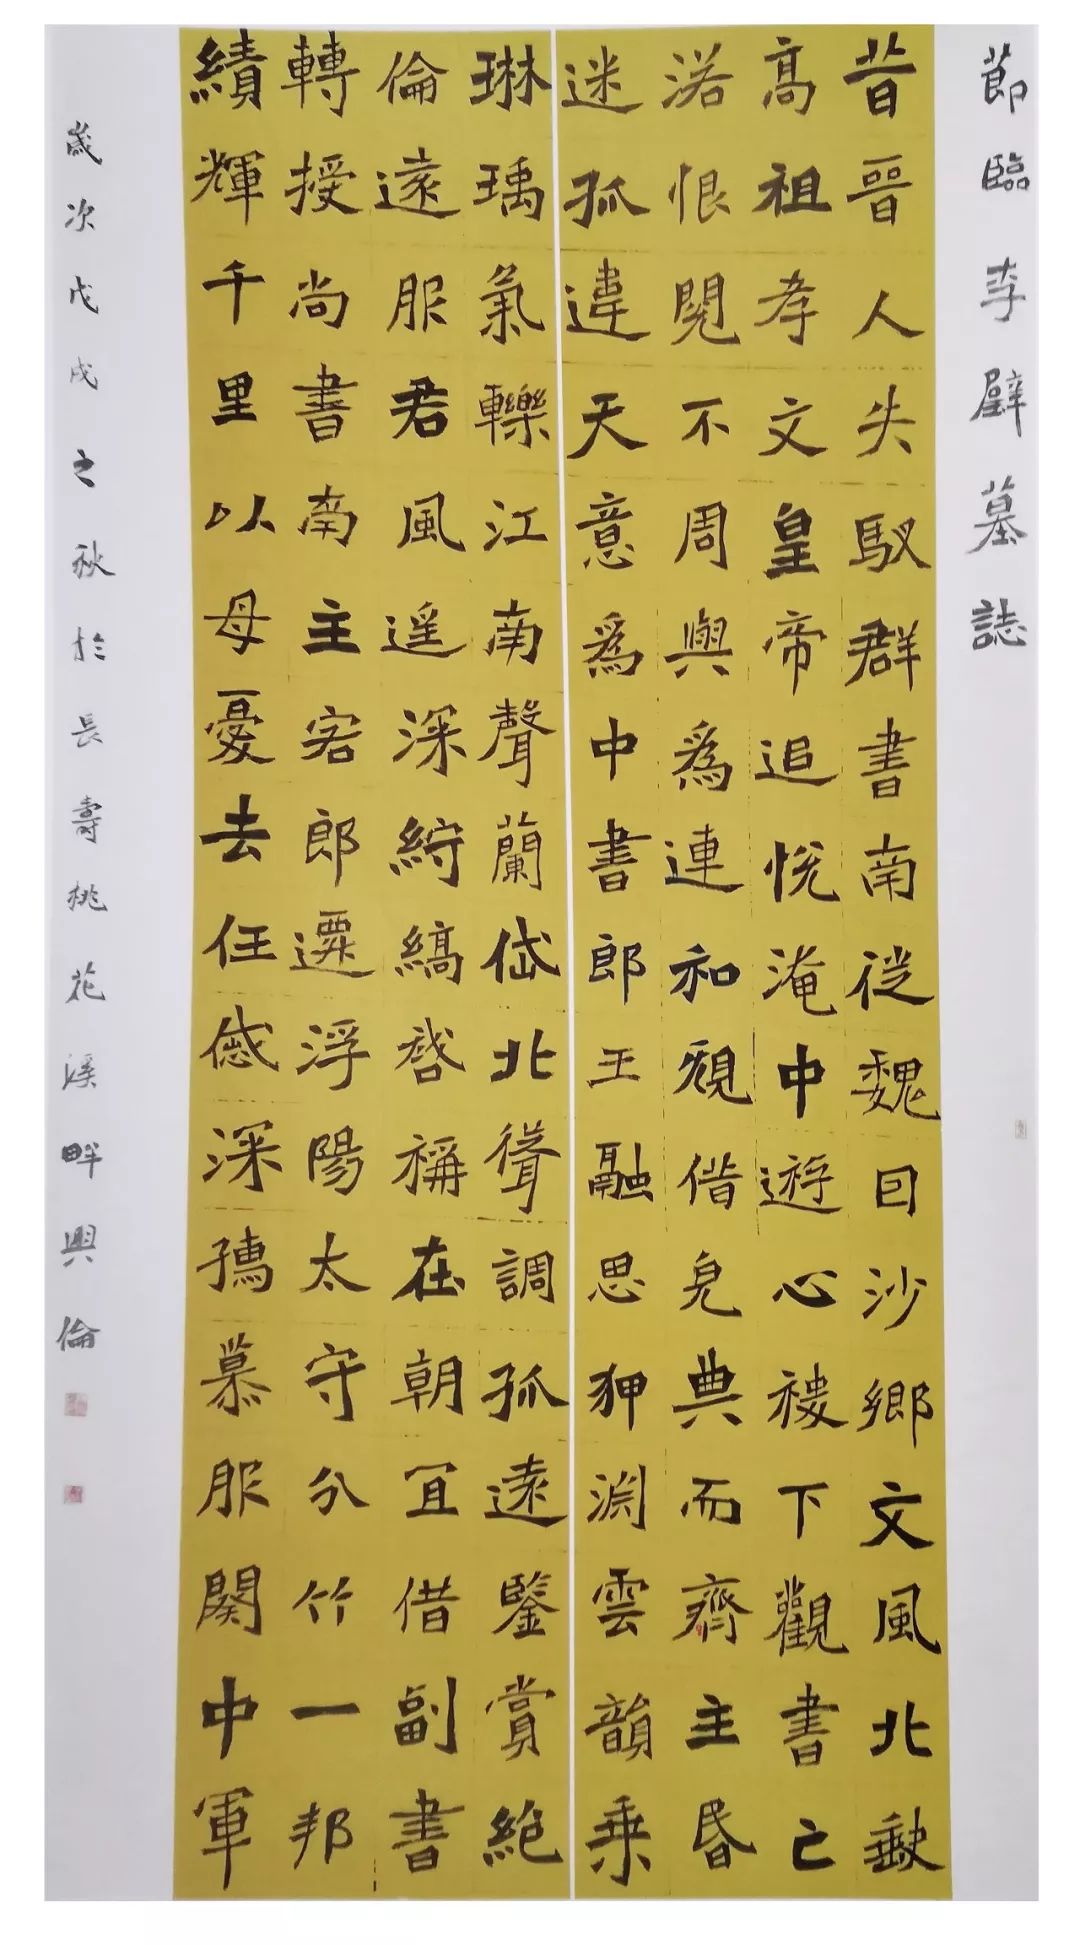 節臨李璧墓誌
昔晉人失馭群書南從魏因沙鄉文風北缺
高祖孝文皇帝追悅淹中遊心稷下觀書亡
落恨閱不周興為連和規借完典而齊主昏
迷孤違天意為中書郎王融思狎淵雲韻乘
琳瑀氣轢江南聲蘭岱北聳調孤遠鑒賞絕
倫遠服君風遙深紵縞啓稱在朝宜借副書
轉授尚書南主客郎遷浮陽太守分竹一邦
績輝千里以母憂去任感深孺慕服闋中軍
歲次戊戌之秋於長壽桃花溪畔興倫